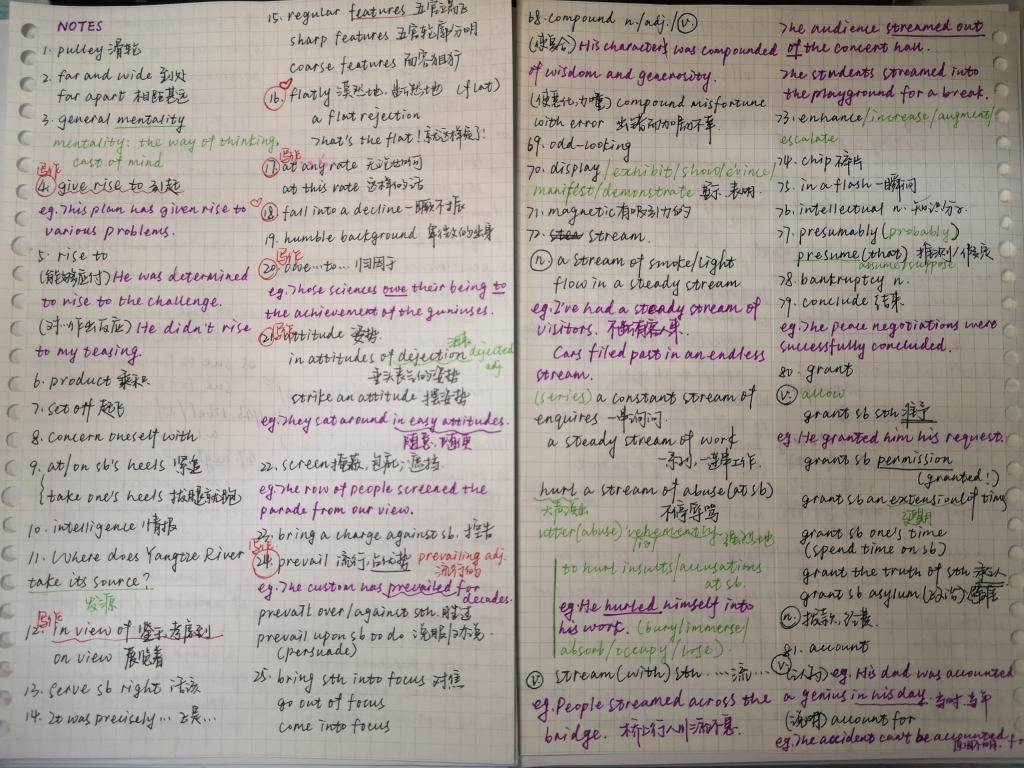 NOTES
1. pulley 滑轮
2. far and wide 到处
far apart 相距甚远
3. general mentality
mentality: the way of thinking,
cast of mind
写作
4. give rise to 引起
eg. This plan has given rise to
various problems.
5. rise to
(能够应付) He was determined
to rise to the challenge.
(对…作出反应) He didn't rise
to my teasing.
6. product 乘积
7. set off 起飞
8. concern oneself with
9. at/on sb's heels 紧追
take one's heels 拔腿就跑
10. intelligence 情报
11. Where does Yangtze River
take its source?
发源
写作
12. in view of 鉴于,考虑到
on view 展览着
13. serve sb right 活该
14. It was precisely… 正是…
15. regular features 五官端正
sharp features 五官轮廓分明
coarse features 面容粗犷
16. flatly 漠然地,断然地 (flat)
a flat rejection
That's the flat! 就这样定了!
写作
17. at any rate 无论如何
at this rate 这样的话
18. fall into a decline 一蹶不振
19. humble background 卑微的出身
写作
20. owe…to… 归因于
eg. Those sciences owe their being to
the achievement of the geniuses.
写作
21. attitude 姿势
in attitudes of dejection dejected
adj.
垂头丧气的姿势
strike an attitude 摆姿势
eg. They sat around in easy attitudes.
随意、随便
22. screen 掩蔽,包庇,遮挡
eg. The row of people screened the
parade from our view.
23. bring a charge against sb. 控告
写作
24. prevail 流行,占优势 prevailing adj.
流行的
eg. The custom has prevailed for
decades.
prevail over/against sth. 胜过
prevail upon sb to do 说服/劝说
(persuade)
25. bring sth into focus 对焦
go out of focus
come into focus
68. compound n./adj./v.
(使复合) His characters was compounded
of wisdom and generosity.
(使恶化,加重) compound misfortune
with error 出错而加剧不幸
69. odd-looking
70. display/exhibit/show/evince/
manifest/demonstrate 显示.表明.
71. magnetic 有吸引力的
72. stream.
n. a stream of smoke/light
flow in a steady stream
eg. I've had a steady stream of
visitors. 不断有客人来.
Cars filed past in an endless
stream.
(series) a constant stream of
enquires 一串询问.
a steady stream of work
一系列,一连串工作.
hurl a stream of abuse (at sb)
大声说出 不停辱骂
utter (abuse) vehemently 强烈地
to hurl insults/accusations
at sb.
eg. He hurled himself into
his work. (bury/immerse/
absorb/occupy/lose)
v. stream (with) sth …流…
eg. People streamed across the
bridge. 桥上行人川流不息.
The audience streamed out
of the concert hall.
The students streamed into
the playground for a break.
73. enhance/increase/augment/
escalate
74. chip 碎片
75. in a flash 一瞬间
76. intellectual n. 知识分子
77. presumably (probably)
presume (that) 推测/假定
assume/suppose
78. bankruptcy n.
79. conclude 结束
eg. The peace negotiations were
successfully concluded.
80. grant
v. allow
grant sb sth 准予
eg. He granted him his request.
grant sb permission
(granted!)
grant sb an extension of time
延期
grant sb one's time
(spend time on sb)
grant the truth of sth 承认
grant sb asylum (政治)庇护
n. 拨款,经费
81. account
v. (认为) eg. His dad was accounted
a genius in his day. 当时.当年
(说明) account for
eg. The accident can't be accounted for